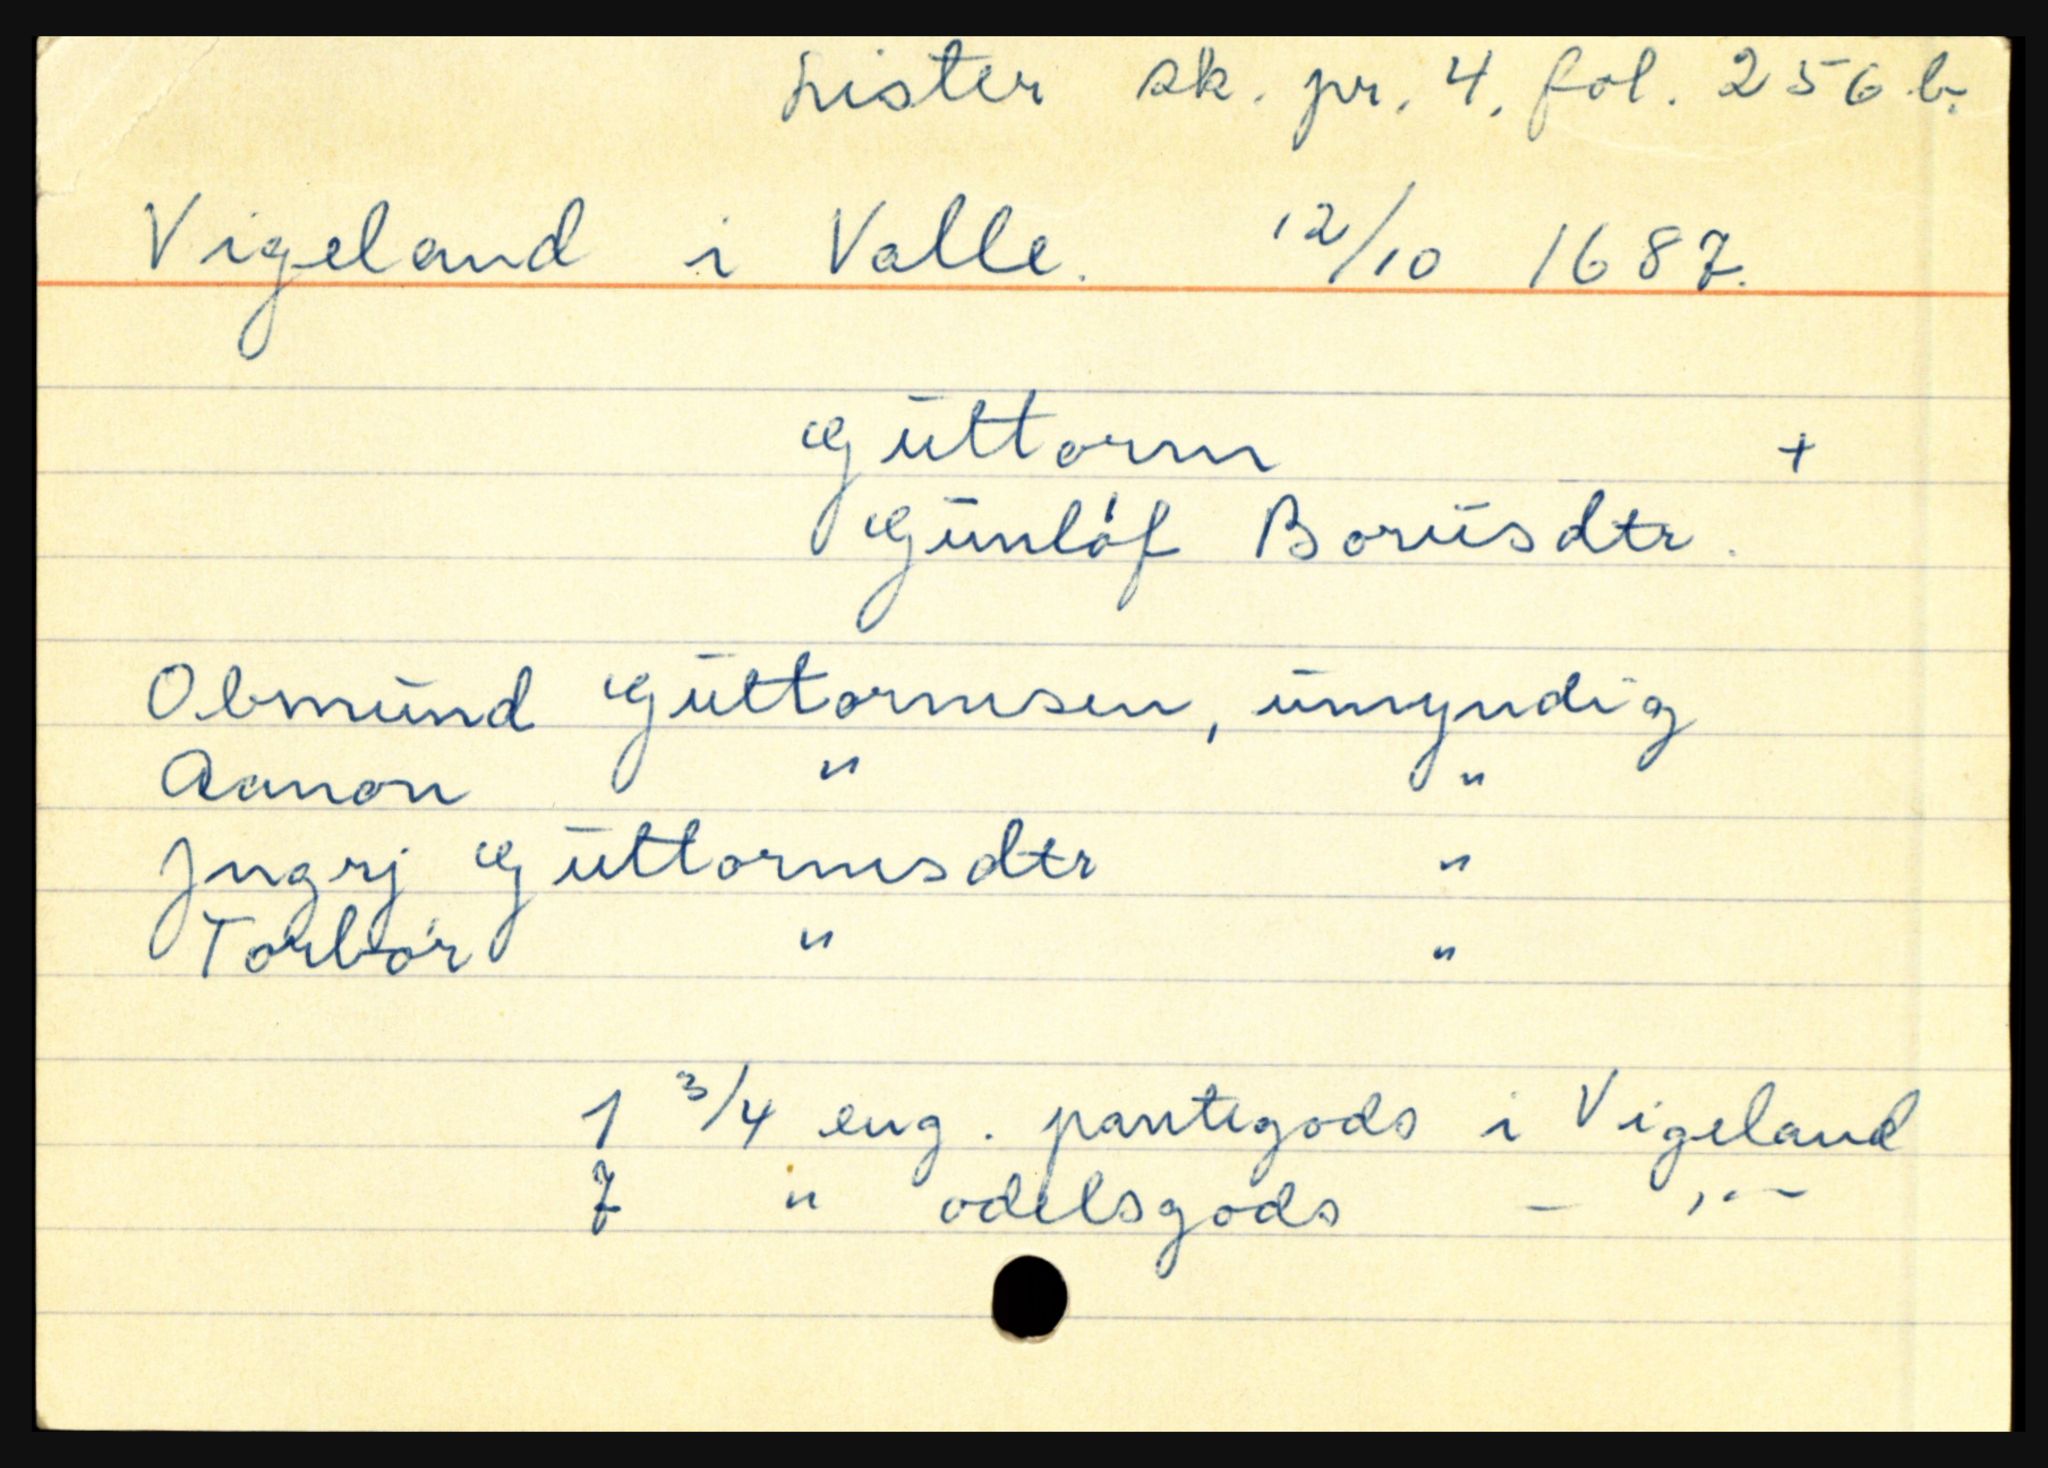 Lister sk. pr. 4. fol. 256 b.
Vigeland i Valle. 12/10 1687.
Guttorm +
Gunløf Boruisdtr.
Obmund Guttormsen, umyndig
Aanon " "
Jngrj Guttormsdtr "
Torbør " "
1 3/4 eng. pantegods i Vigeland
7 " odelsgods – ,.–